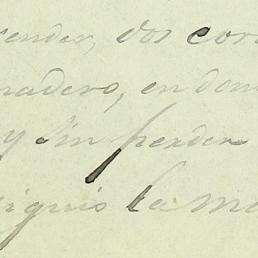 render, dos cor
nadero, en don
y sin perder
siguio la ma